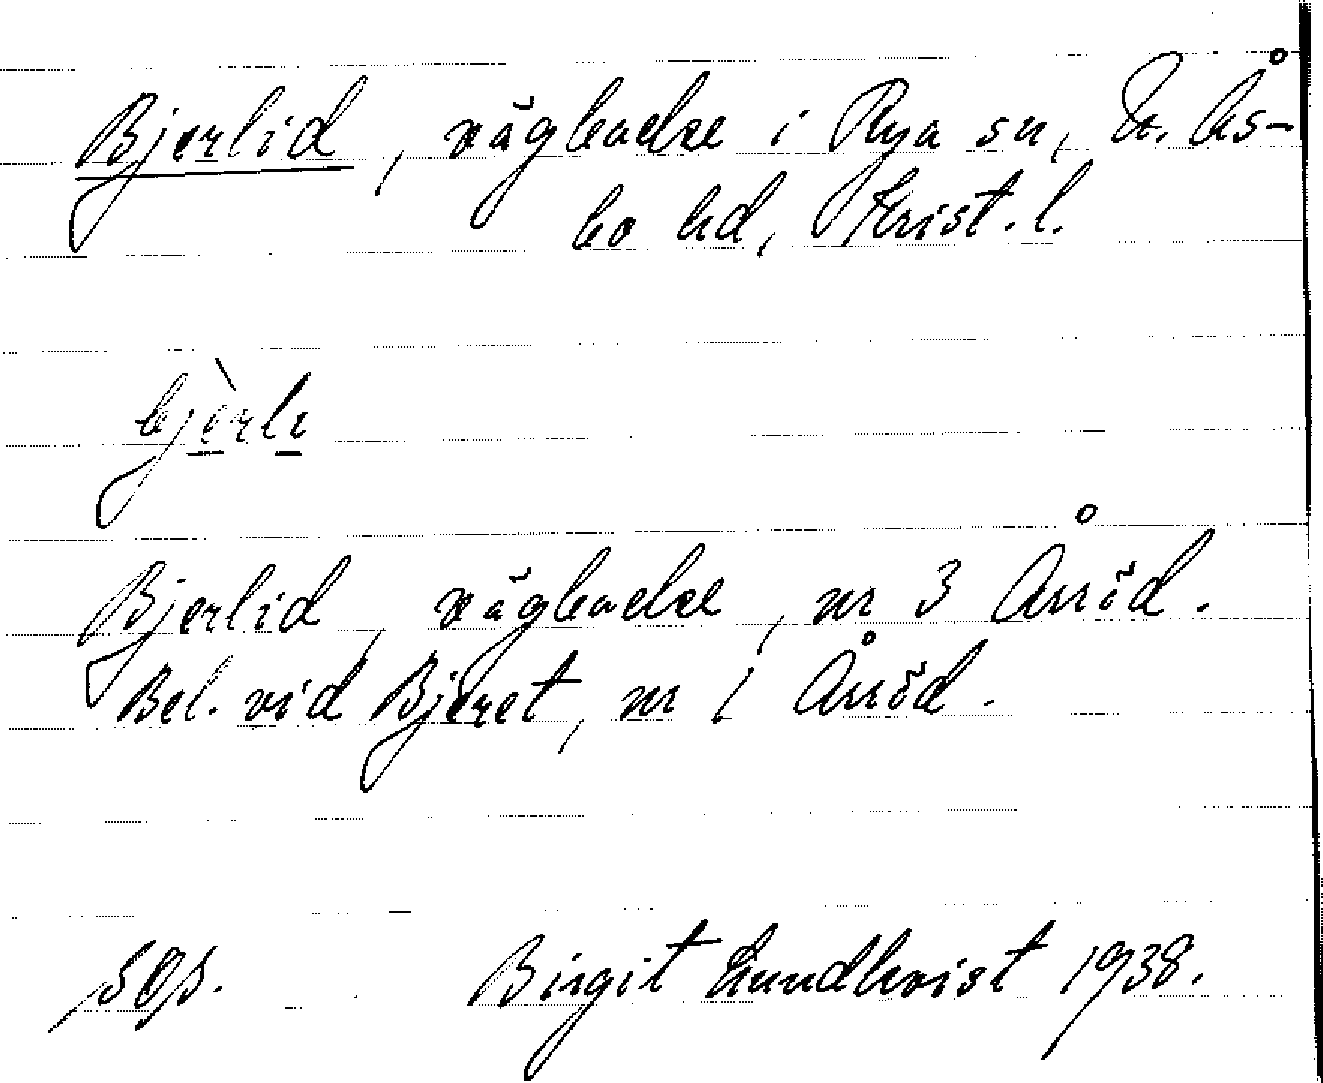 Bjerlid, vägbacke i Rya sn, N. Ås-
bo hd, Krist. l.
bjèrli
Bjerlid, vägbacke, nr 3 Årröd.
Bel. vid Bjeret, nr 1 Årröd.
Birgit Lundkvist 1938.